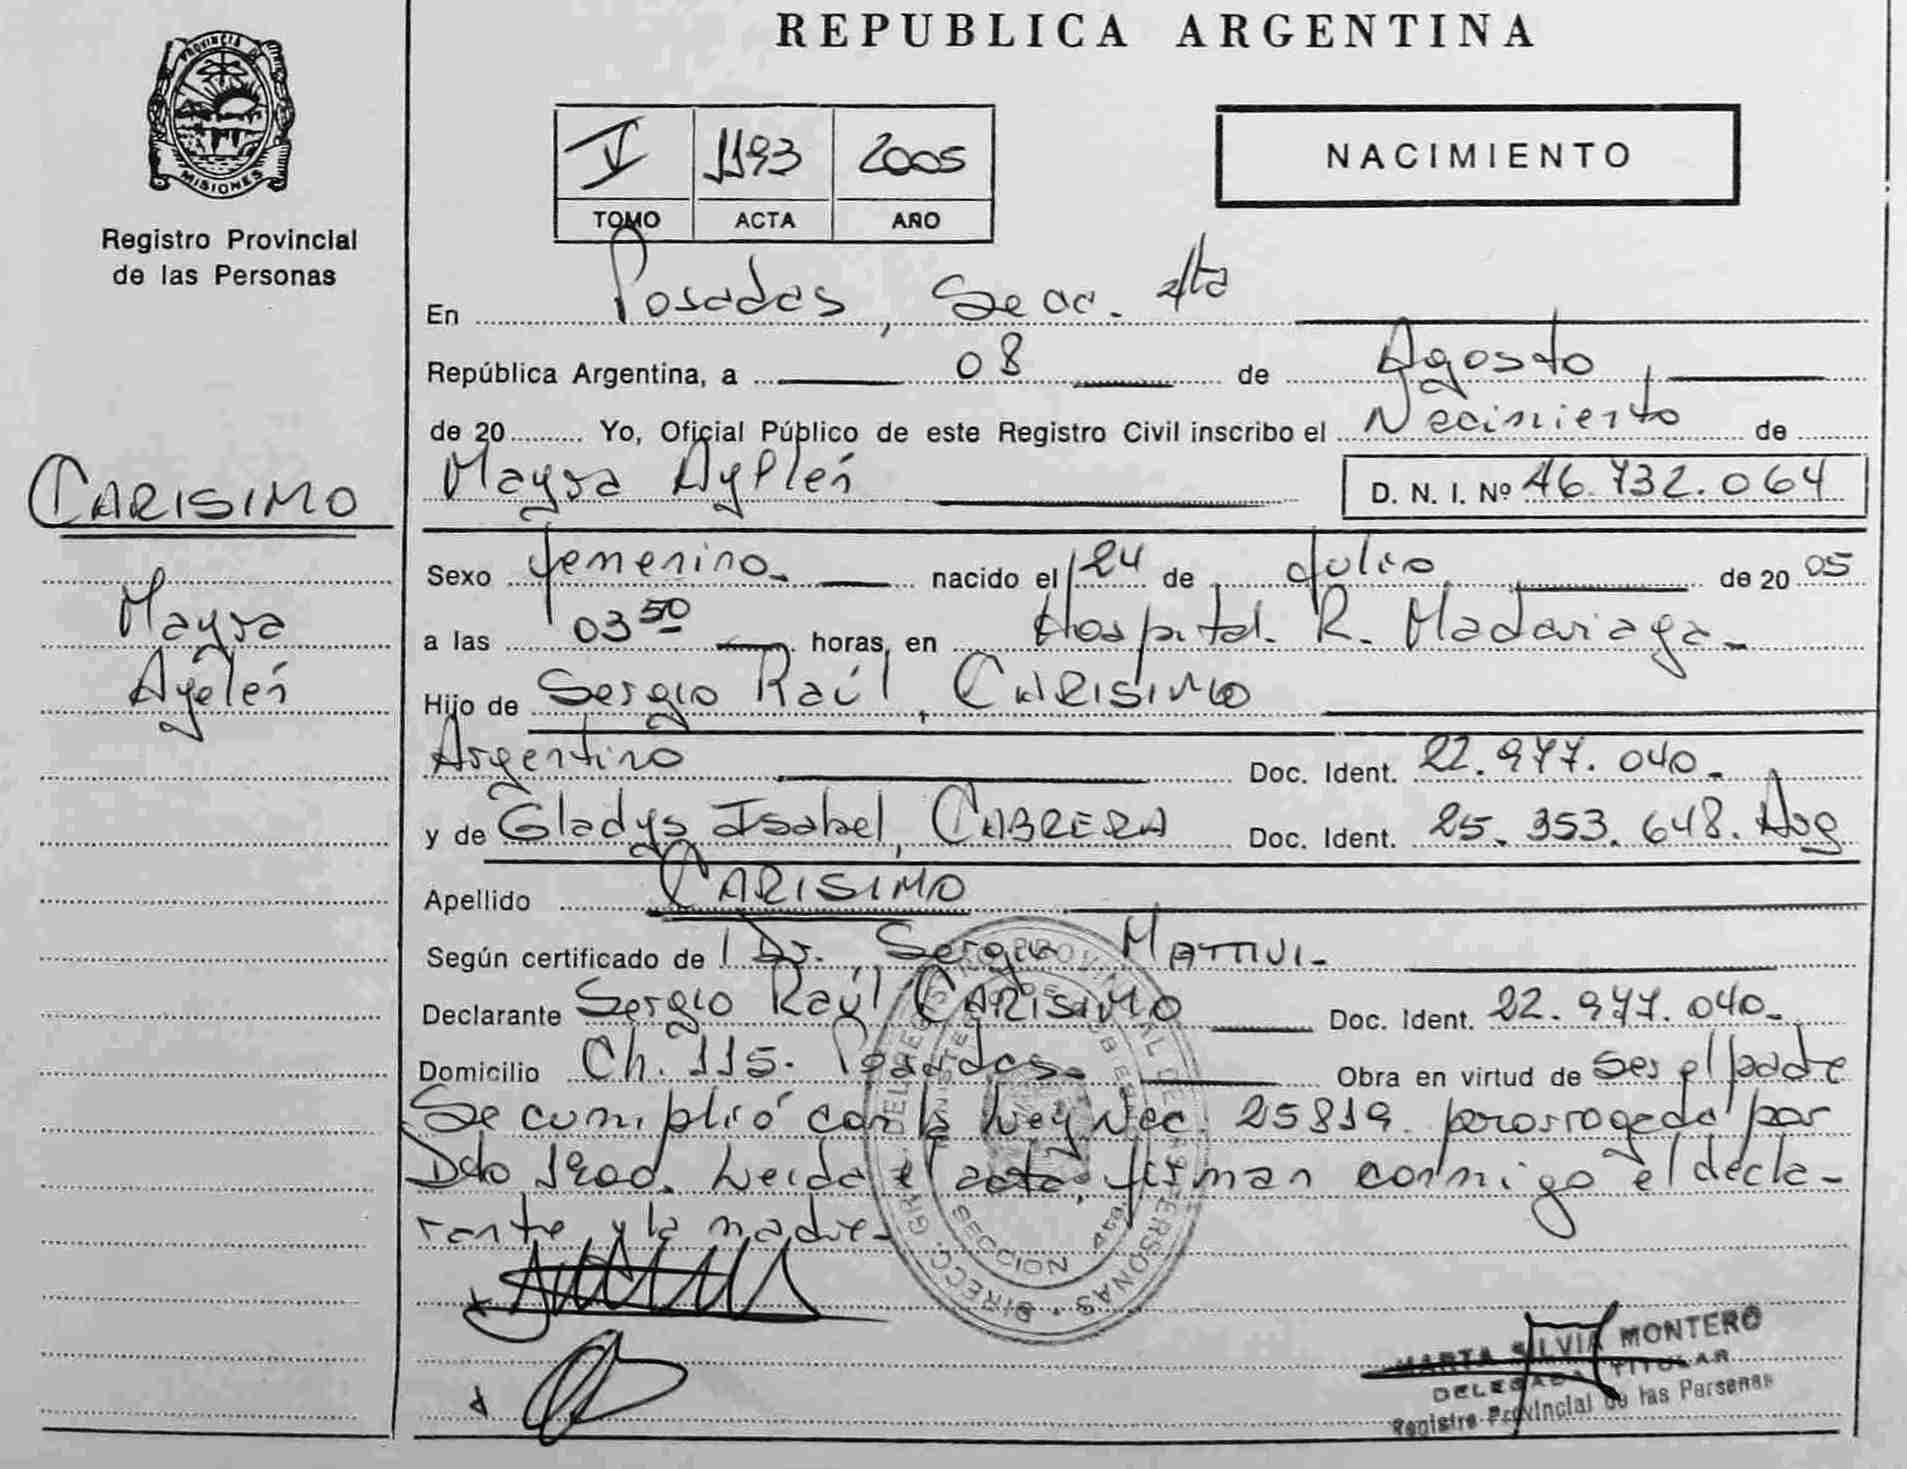 REPUBLICA ARGENTINA
PROVINCIA DE
MISIONES
Registro Provincial
de las Personas
V 1193 2005
TOMO ACTA AÑO
NACIMIENTO
CARISIMO
Mayra
Ayelén
En Posadas, Secc. 4ta
República Argentina, a 08 de Agosto
de 20 Yo, Oficial Público de este Registro Civil inscribo el Nacimiento de
Mayra Aylén D. N. I. Nº 46.732.064
Sexo femenino nacido el 24 de Julio de 20 05
a las 03 50 horas, en Hospital. R. Madariaga
Hijo de Sergio Raúl, CARISIMO
Argentino Doc. Ident. 22.977.040
y de Gladys Isabel, CABRERA Doc. Ident. 25.353.648. Arg
Apellido CARISIMO
Según certificado de Dr. Sergio MATTIVI
Declarante Sergio Raúl CARISIMO Doc. Ident. 22.977.040
Domicilio Ch. 115. Posadas Obra en virtud de ser el padre
Se cumplió con la Ley Nac. 25819 prorrogada por
Dto Leída el acta, firman conmigo el decla-
rante y la madre
SECCION 4ta
MARTA SILVIA MONTERO
DELEGADA TITULAR
Registro Provincial de las Personas